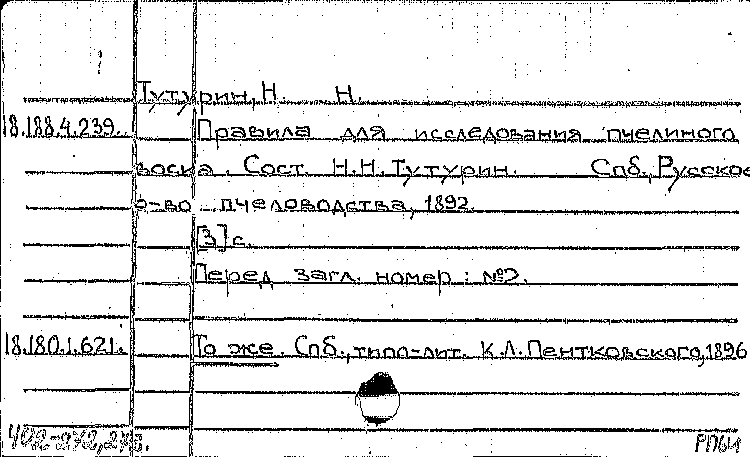 Тутурин, Н. Н.
18.188.4.239. Правила для исследования пчелиного
воска. Сост. Н.Н. Тутурин. Спб., Русское
о-во пчеловодства, 1892.
[3] с.
Перед загл. номер: №2.
18.180.1.621. То же. Спб., типо-лит. К.Л. Пентковского, 1896